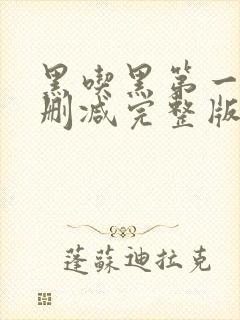 黑喫黑第一
删减完整版
蓬蘇迪拉克